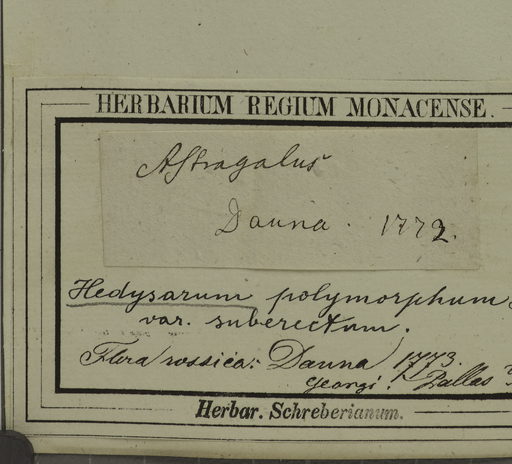 HERBARIUM REGIUM MONACENSE.
Astragalus
Dauna. 1772.
Hedysarum polymorphum
var. suberectum.
Flora rossica: Dauna 1773.
Georgi. Pallas
Herbar. Schreberianum.